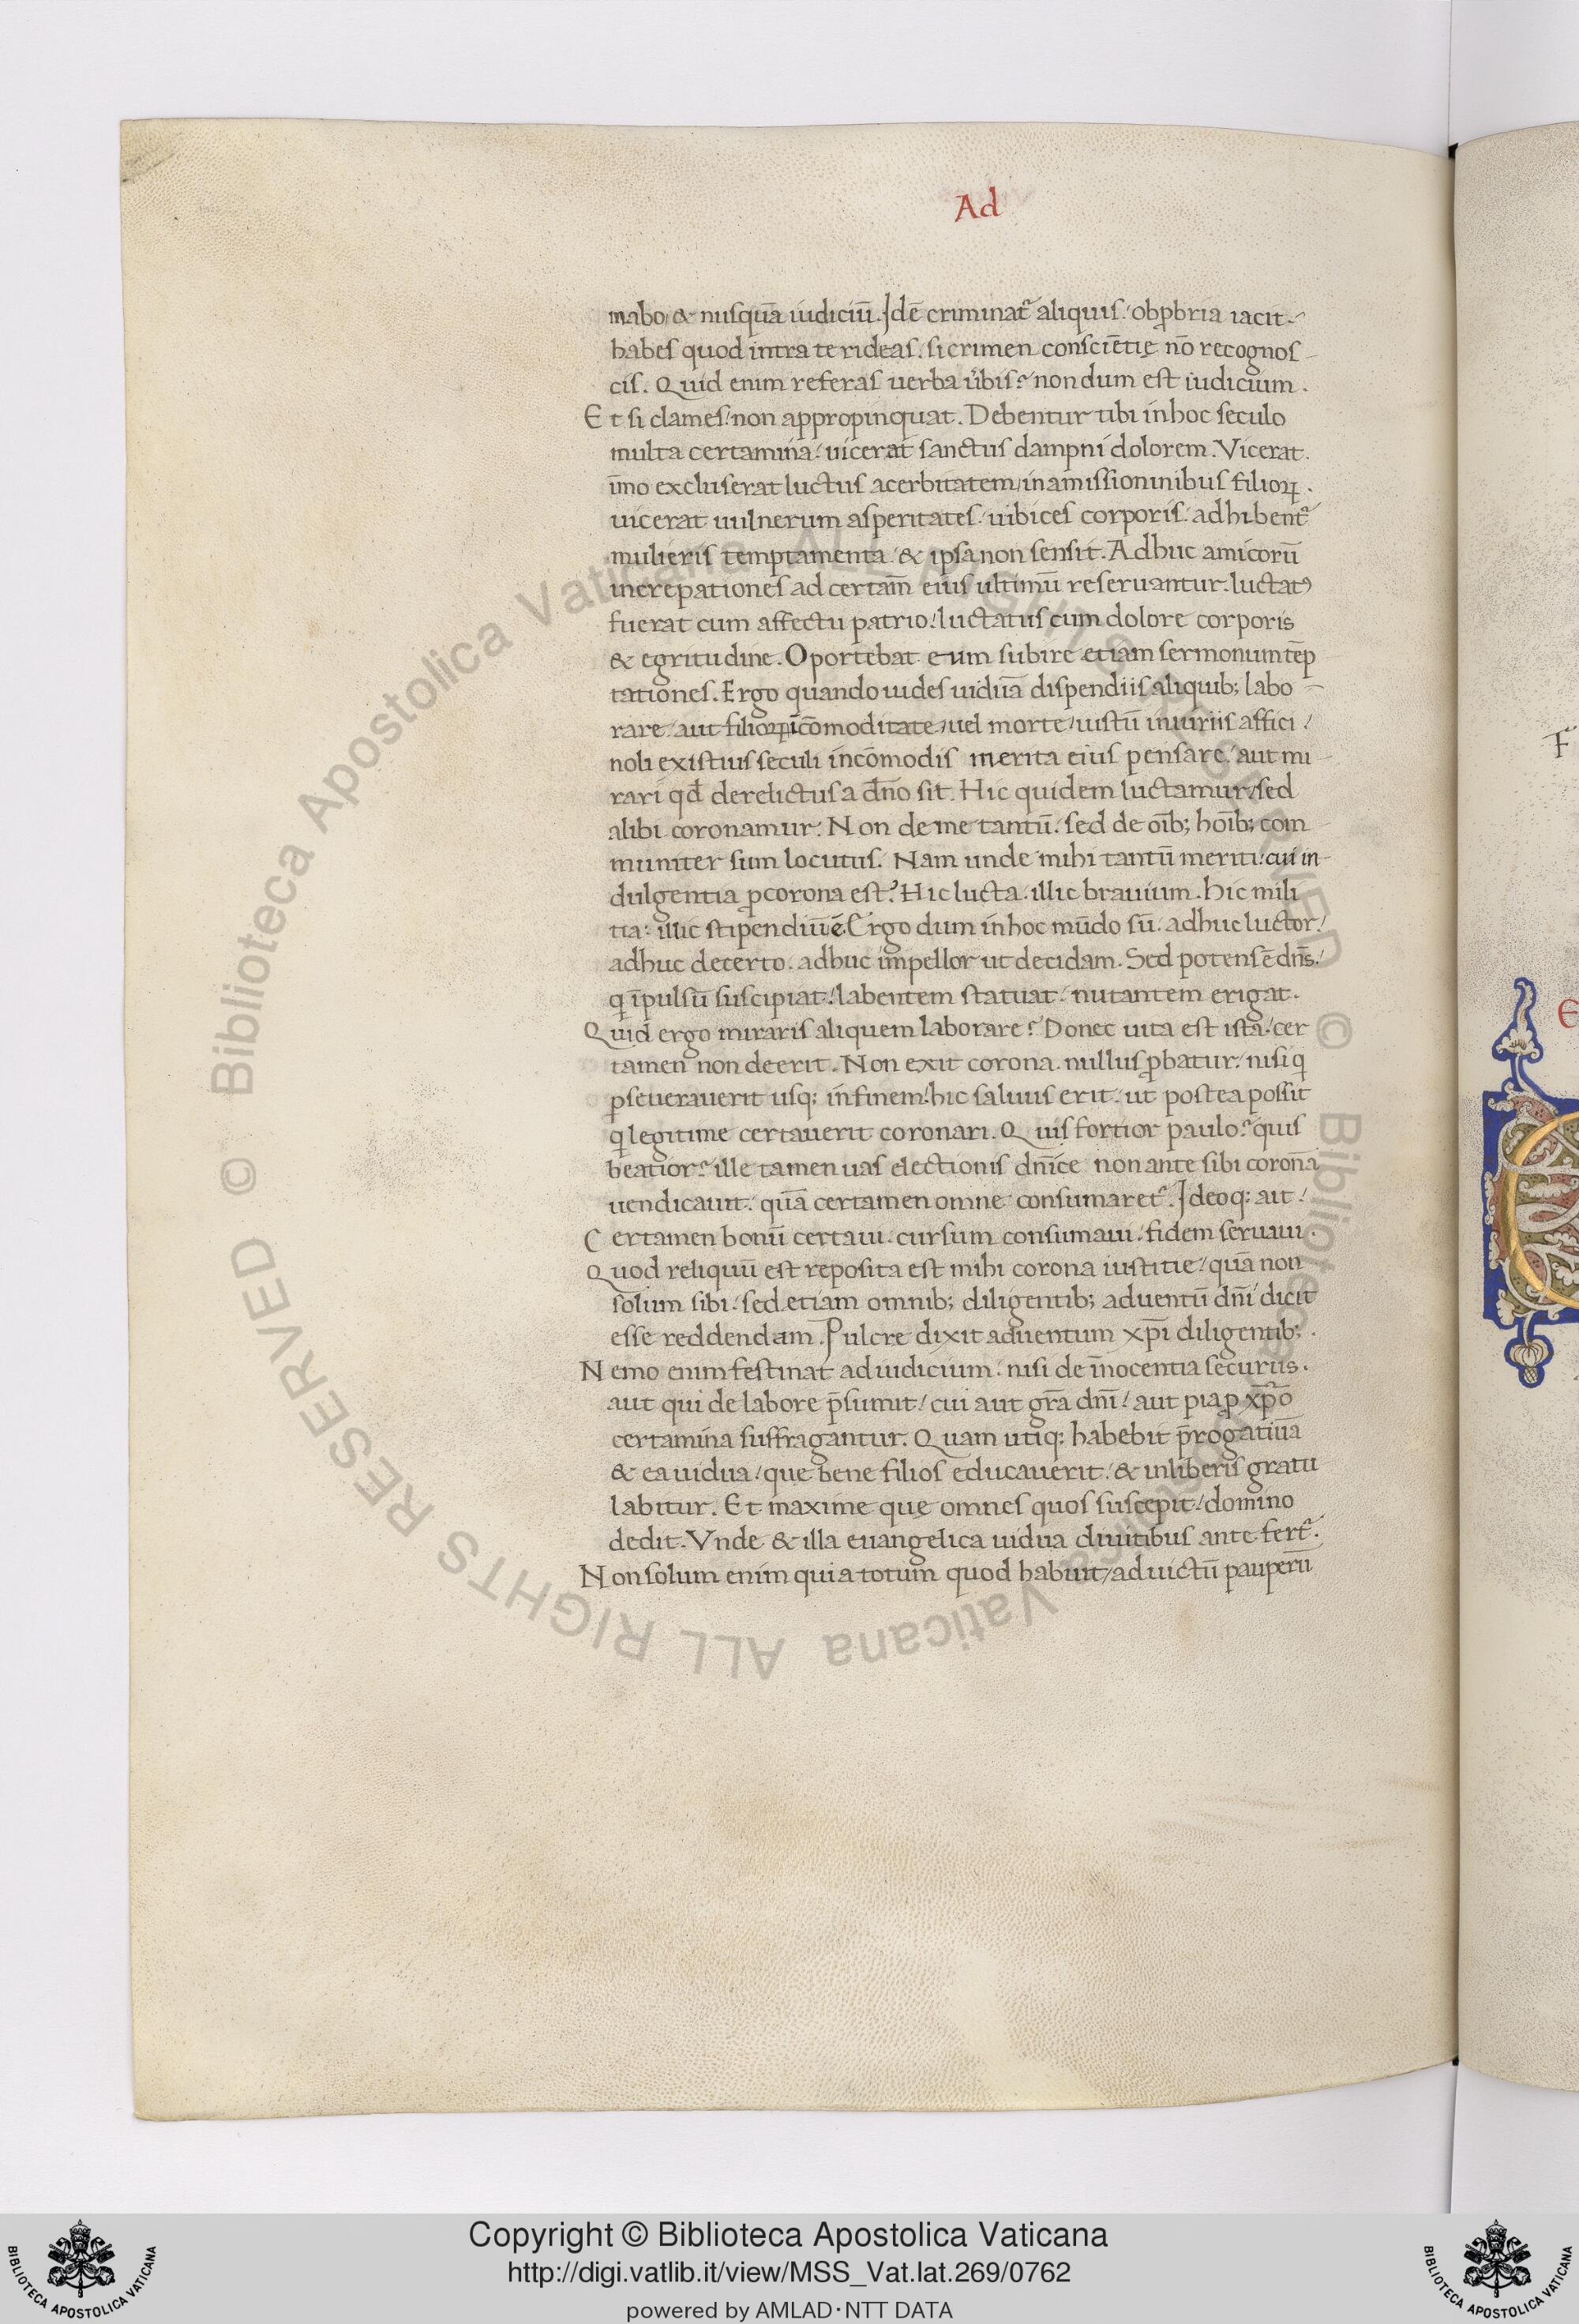 Ad
mabo & nusquā iudiciū. Idē criminat᷑ aliquis / obꝓbria iacit
habes quod intra te rideas. si crimen consciētię nō recognos
cis. Quid enim referas uerba ūbis? non dum est iudicium.
Et si clames / non appropinquat. Debentur tibi in hoc seculo
multa certamina / uicerat sanctus dampni dolorem. Vicerat.
ūno excluserat luctus acerbitatem / in amissioninibus filioꝝ.
uicerat uulnerum asperitates / uibices corporis. adhibent᷑
mulieris temptamenta / & ipsa non sensit. Adhuc amicorū
increpationes ad certam̄ eius ultimū reseruantur. luctatꝰ
fuerat cum affectu patrio / luctatus cum dolore corporis
& egritudine. Oportebat eum subire etiam sermonum tēp
tationes. Ergo quando uides uiduā dispendiis aliquib; labo
rare / aut filioꝝ icōmoditate / uel morte / iustū iniuriis affici /
noli ex istius seculi incōmodis merita eius pensare / aut mi
rari qđ derelictus a dño sit. Hic quidem luctamur / sed
alibi coronamur. Non de me tantū. sed de oīb; hoīb; com
muniter sum locutus. Nam unde mihi tantū meriti / cui in
dulgentia ꝓ corona est? Hic lucta. illic brauium. hic mili
tia: illic stipendiū ē. Ergo dum in hoc mūdo sū. adhuc luctor /
adhuc decerto. adhuc impellor ut decidam. Sed potens ē dn̄s /
q īpulsū suscipiat / labentem statuat / nutantem erigat.
Quid ergo miraris aliquem laborare? Donec uita est ista / cer
tamen non deerit. Non exit corona. nullus ꝓbatur / nisi q
ꝑseuerauerit usq; in finem / hic saluus erit / ut postea possit
q legitime certauerit coronari. Quis fortior paulo? quis
beatior? ille tamen uas electionis dn̄ice non ante sibi coronā
uendicauit / quā certamen omne consumaret᷑. Ideoq; ait /
Certamen bonū certaui. cursum consumaui. fidem seruaui.
Quod reliquū est reposita est mihi corona iustitie / quā non
solum sibi / sed etiam omnib; diligentib; aduentū dn̄i dicit
esse reddendam. Pulcre dixit aduentum xp̄i diligentib;.
Nemo enim festinat ad iudicium / nisi de īnocentia securus.
aut qui de labore p̄sumit / cui aut gr̄a dn̄i / aut pia ꝓ xp̄o
certamina suffragantur. Quam utiq; habebit p̄rogatiuā
& ea uidua / que bene filios educauerit / & in liberis gratu
labitur. Et maxime quę omnes quos suscepit / domino
dedit. Vnde & illa euangelica uidua diuitibus ante fert᷑.
Non solum enim quia totum quod habuit / ad uictū pauperū
F
E
© Biblioteca Apostolica Vaticana ALL RIGHTS RESERVED © Biblioteca Apostolica Vaticana ALL RIGHTS RESERVED
BIBLIOTECA APOSTOLICA VATICANA
Copyright © Biblioteca Apostolica Vaticana
http://digi.vatlib.it/view/MSS_Vat.lat.269/0762
powered by AMLAD・NTT DATA
BIBLIOTECA APOSTOLICA VATICANA